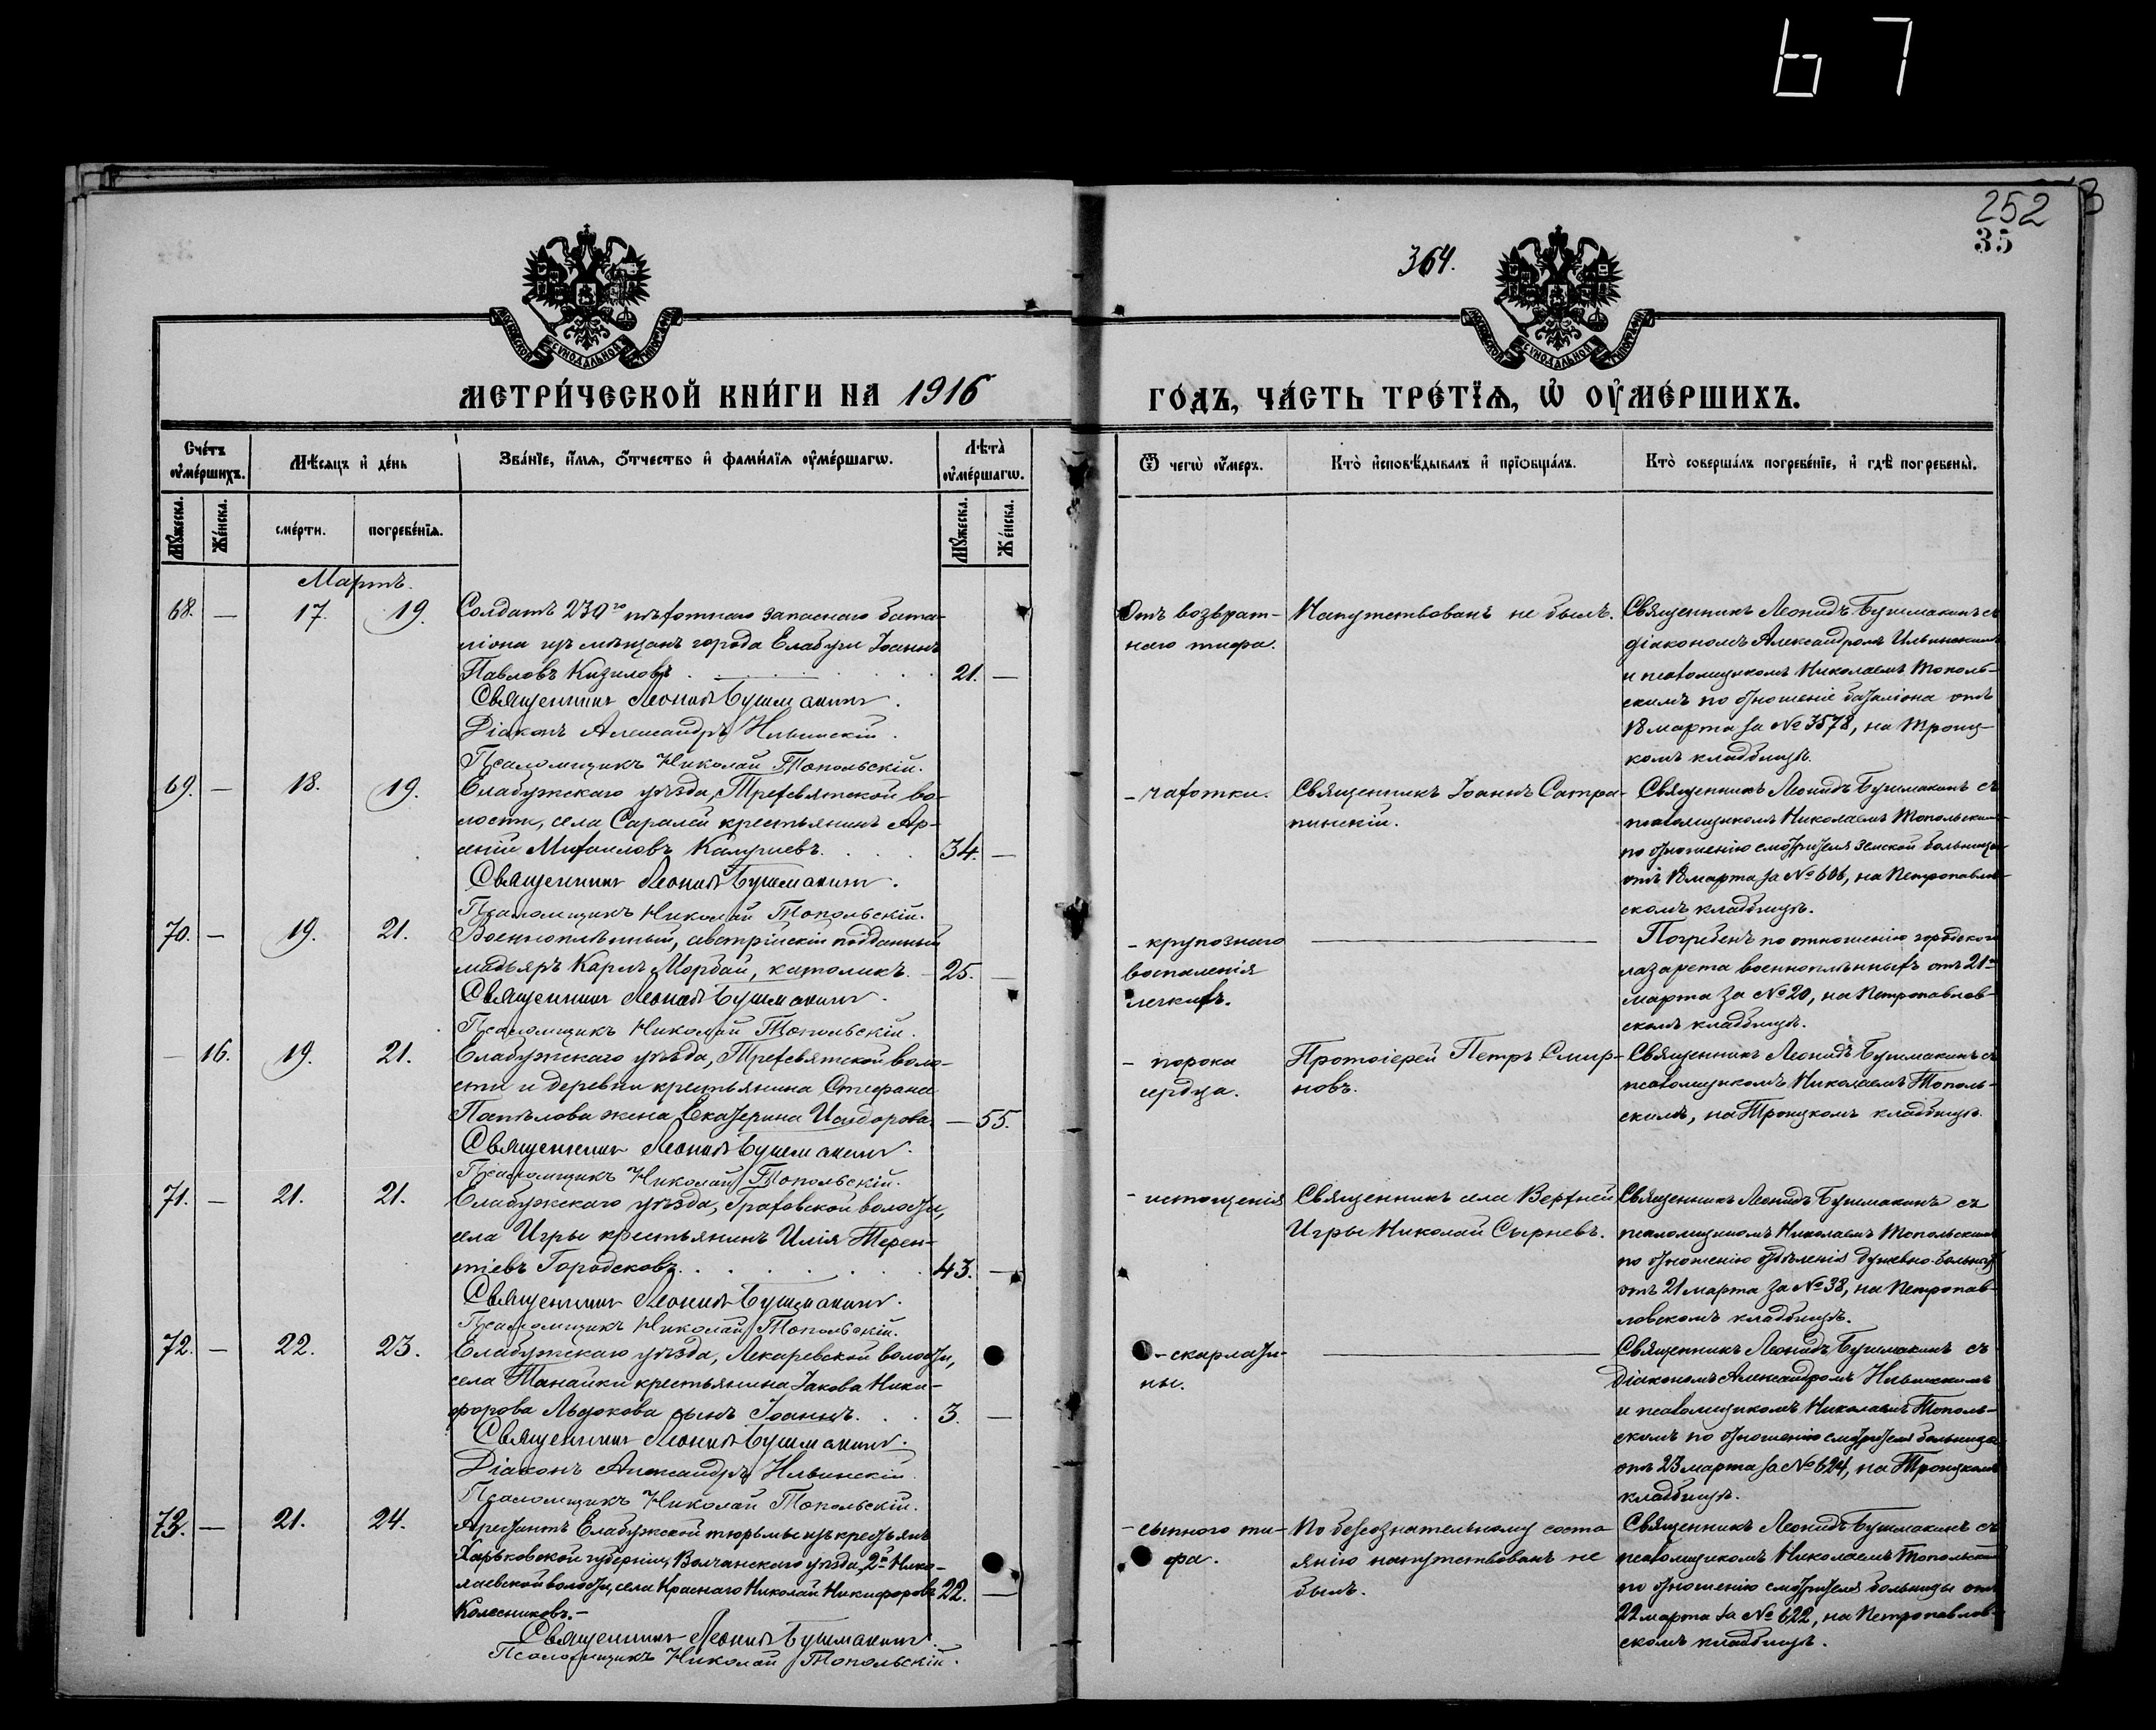 67
252
35
364.
МОСКОВСКОЙ СѴНОДАЛЬНОЙ ТИПОГРАФІИ
МОСКОВСКОЙ СѴНОДАЛЬНОЙ ТИПОГРАФІИ
МЕТРИ́ЧЕСКОЙ КНИ́ГИ НА 1916 ГО́ДЪ, ЧА́СТЬ ТРЕ́ТЇѦ, Ѡ҆ ОУ҆МЕ́РШИХЪ.
Счетъ оумершихъ.
Мѣсяцъ и день
Званїе, имя, отчество и фамилїя оумершагѡ.
Лѣта оумершагѡ.
Ѿ чегѡ оумеръ.
Кто исповѣдывалъ и прїѡбщалъ.
Кто совершалъ погребенїе, и гдѣ погребены.
Мужеска.
Женска.
смерти.
погребенїя.
Мужеска.
Женска.
Мартъ.
68. — 17. 19.
Солдатъ 230го пѣхотнаго запаснаго бата-
ліона изъ мѣщанъ города Елабуги Іоаннъ
Павловъ Кизиловъ 21. —
Священникъ Леонидъ Бушмакинъ.
Діаконъ Александръ Ильинскій.
Псаломщикъ Николай Топольскій.
Отъ возврат-
наго тифа.
Напутствованъ не былъ.
Священникъ Леонидъ Бушмакинъ съ
діакономъ Александромъ Ильинскимъ
и псаломщикомъ Николаемъ Тополь-
скимъ по отношеніе баталіона отъ
18 марта за № 3578, на Троиц-
комъ кладбищѣ.
69. — 18. 19.
Елабужскаго уѣзда, Трехсвятской во-
лости, села Саралей крестьянинъ Ар-
сеній Михаиловъ 34. —
Священникъ Леонидъ Бушмакинъ.
Псаломщикъ Николай Топольскій.
— чахотки.
Священникъ Іоаннъ Сатра-
пинскій.
Священникъ Леонидъ Бушмакинъ съ
псаломщикомъ Николаемъ Топольскимъ
по отношенію смотрителя земской больницы
отъ 18 марта за № 606, на Петропавлов-
скомъ кладбищѣ.
70. — 19. 21.
Военноплѣнный, австрійскій подданный
мадьяръ Карлъ Морбай, католикъ. 25. —
Священникъ Леонидъ Бушмакинъ.
Псаломщикъ Николай Топольскій.
— крупознаго
воспаленія
легкихъ.
Погребенъ по отношенію городского
лазарета военноплѣнныхъ отъ 21го
марта за № 20, на Петропавлов-
скомъ кладбищѣ.
— 16. 19. 21.
Елабужскаго уѣзда, Трехсвятской воло-
сти и деревни крестьянина Стефана
Патѣлова жена Екатерина Исидорова. — 55.
Священникъ Леонидъ Бушмакинъ.
Псаломщикъ Николай Топольскій.
— порока
сердца.
Протоіерей Петръ Смир-
новъ.
Священникъ Леонидъ Бушмакинъ съ
псаломщикомъ Николаемъ Тополь-
скимъ, на Троицкомъ кладбищѣ.
71. — 21. 21.
Елабужскаго уѣзда, Граховской волости,
села Игры крестьянинъ Илія Терен-
тіевъ Городсковъ. 43. —
Священникъ Леонидъ Бушмакинъ.
Псаломщикъ Николай Топольскій.
— истощенія
Священникъ села Верхней
Игры Николай Сырневъ.
Священникъ Леонидъ Бушмакинъ съ
псаломщикомъ Николаемъ Топольскимъ
по отношенію отдѣленія душевно-больныхъ
отъ 21 марта за № 38, на Петропав-
ловскомъ кладбищѣ.
72. — 22. 23.
Елабужскаго уѣзда, Лекаревской волости,
села Танайки крестьянина Іакова Ники-
форова Льдокова сынъ Іоаннъ. 3. —
Священникъ Леонидъ Бушмакинъ.
Діаконъ Александръ Ильинскій
Псаломщикъ Николай Топольскій.
— скарлати-
ны.
Священникъ Леонидъ Бушмакинъ съ
діакономъ Александромъ Ильинскимъ
и псаломщикомъ Николаемъ Тополь-
скимъ по отношенію смотрителя больницы
отъ 23 марта за № 624, на Троицкомъ
кладбищѣ.
73. — 21. 24.
Арестантъ Елабужской тюрьмы изъ крестьянъ
Харьковской губерніи, Волчанскаго уѣзда, 2й Нико-
лаевской волости, села Краснаго Николай Никифоровъ 22. —
Колесниковъ. —
Священникъ Леонидъ Бушмакинъ.
Псаломщикъ Николай Топольскій.
— сыпного ти-
фа.
По безсознательному состо-
янію напутствованъ не
былъ.
Священникъ Леонидъ Бушмакинъ съ
псаломщикомъ Николаемъ Топольскимъ
по отношенію смотрителя больницы отъ
22 марта за № 622, на Петропавлов-
скомъ кладбищѣ.